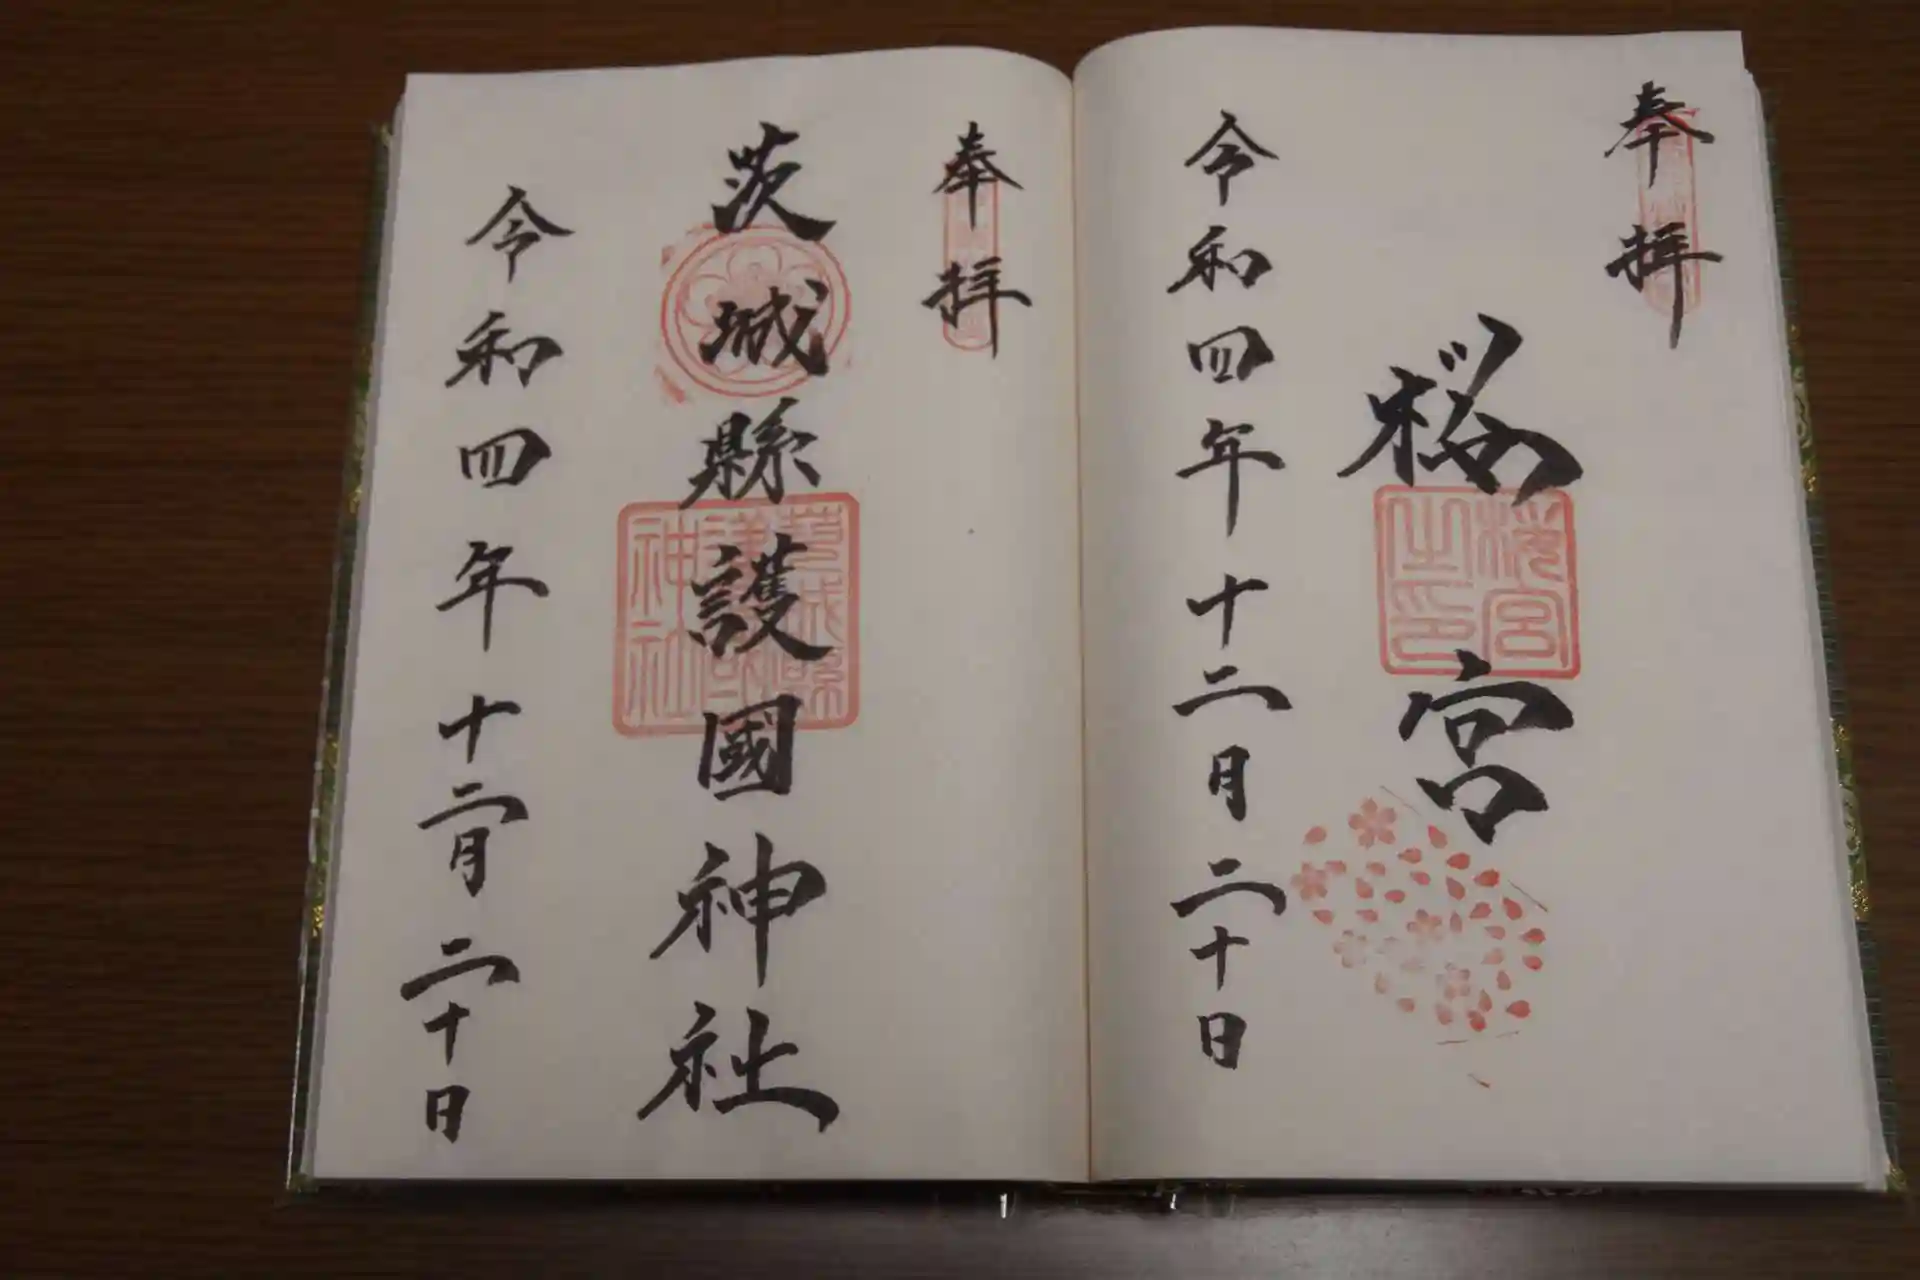 奉拝
桜宮
桜宮
之印
令和四年十二月二十日
奉拝
茨城縣護國神社
茨城縣
護國
神社
令和四年十二月二十日